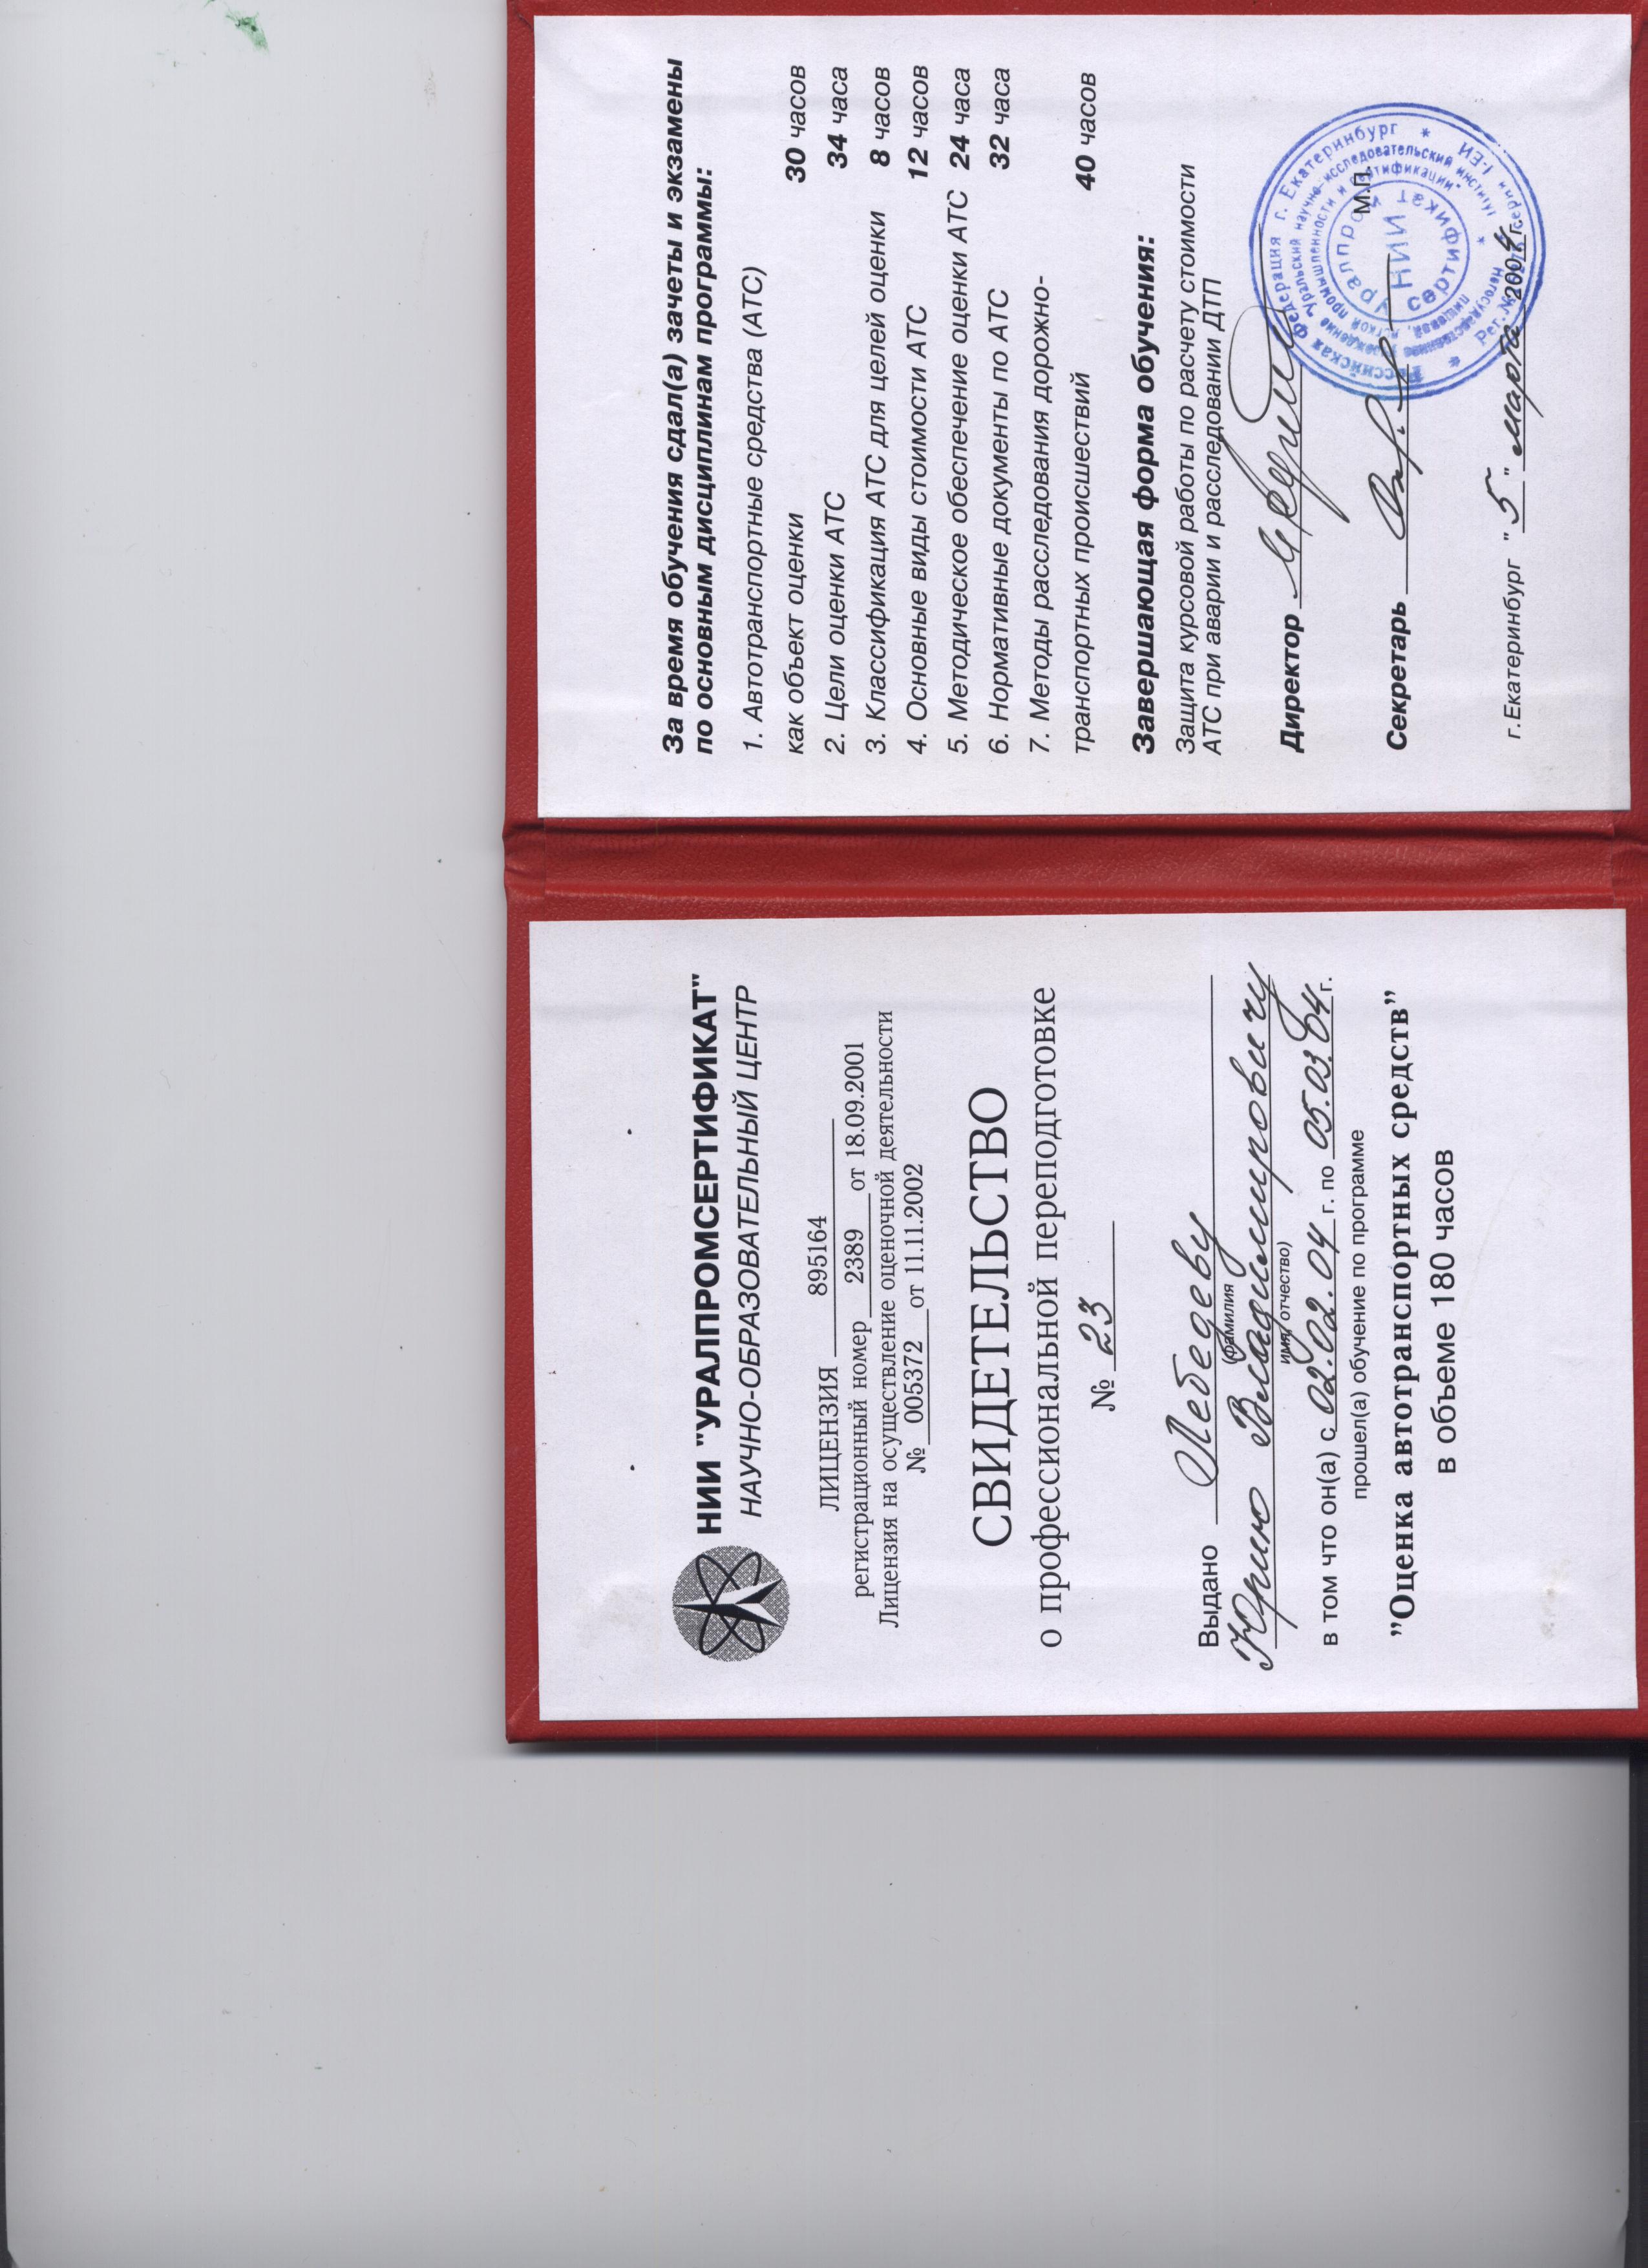 НИИ "УРАЛПРОМСЕРТИФИКАТ"
НАУЧНО-ОБРАЗОВАТЕЛЬНЫЙ ЦЕНТР
ЛИЦЕНЗИЯ 895164
регистрационный номер 2389 от 18.09.2001
Лицензия на осуществление оценочной деятельности
№ 005372 от 11.11.2002
СВИДЕТЕЛЬСТВО
о профессиональной переподготовке
№ 23
Выдано Лебедеву
(фамилия
Юрию Владимировичу
имя, отчество)
в том что он(а) с 02.02.04 г. по 05.03.04 г.
прошел(а) обучение по программе
"Оценка автотранспортных средств"
в объеме 180 часов
За время обучения сдал(а) зачеты и экзамены
по основным дисциплинам программы:
1. Автотранспортные средства (АТС)
как объект оценки 30 часов
2. Цели оценки АТС 34 часа
3. Классификация АТС для целей оценки 8 часов
4. Основные виды стоимости АТС 12 часов
5. Методическое обеспечение оценки АТС 24 часа
6. Нормативные документы по АТС 32 часа
7. Методы расследования дорожно-
транспортных происшествий 40 часов
Завершающая форма обучения:
Защита курсовой работы по расчету стоимости
АТС при аварии и расследовании ДТП
Директор
М.П.
Секретарь
г.Екатеринбург "5" марта 2004 г.
Российская Федерация г. Екатеринбург
"Уральский научно-исследовательский институт
промышленности и сертификации"
Уралпром
НИИ
сертификат